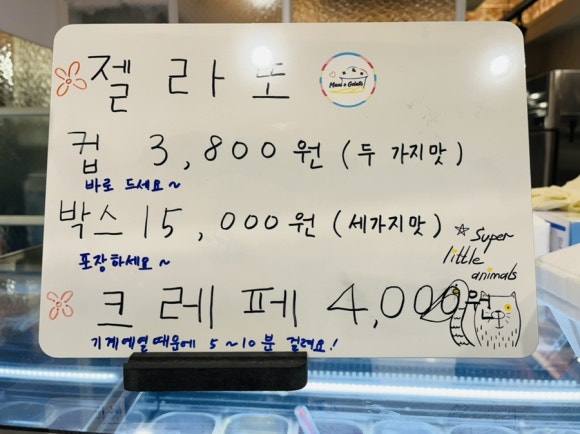 젤라또
컵 3,800원 (두 가지맛)
바로 드세요~
박스 15,000원 (세가지맛)
포장하세요~
☆ Super
little
animals
크레페 4,000원
기계예열때문에 5~10분 걸려요!